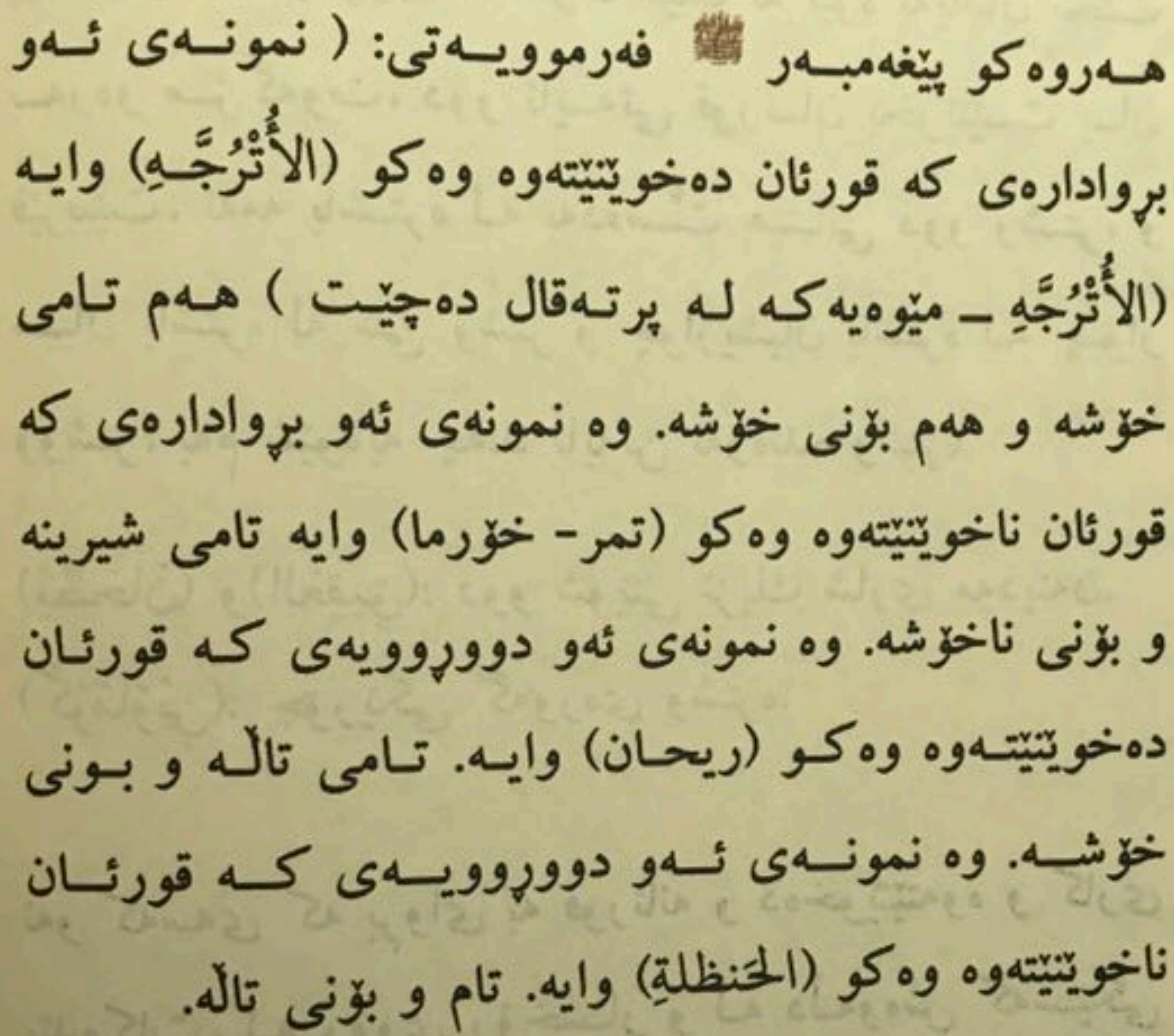 هەروەکو پێغەمبەر ﷺ فەرموویەتی: ( نمونەی ئەو
بڕوادارەی کە قورئان دەخوێنێتەوە وەکو (الأُتْرُجَّهِ) وایە
(الأُتْرُجَّهِ – مێوەیەکە لە پرتەقال دەچێت ) هەم تامی
خۆشە و هەم بۆنی خۆشە. وە نمونەی ئەو بڕوادارەی کە
قورئان ناخوێنێتەوە وەکو (تمر- خۆرما) وایە تامی شیرینە
و بۆنی ناخۆشە. وە نمونەی ئەو دووڕوویەی کە قورئان
دەخوێنێتەوە وەکو (ریحان) وایە. تامی تاڵە و بونی
خۆشە. وە نمونەی ئەو دووڕوویەی کە قورئان
ناخوێنێتەوە وەکو (الحَنظلةِ) وایە. تام و بۆنی تاڵە.